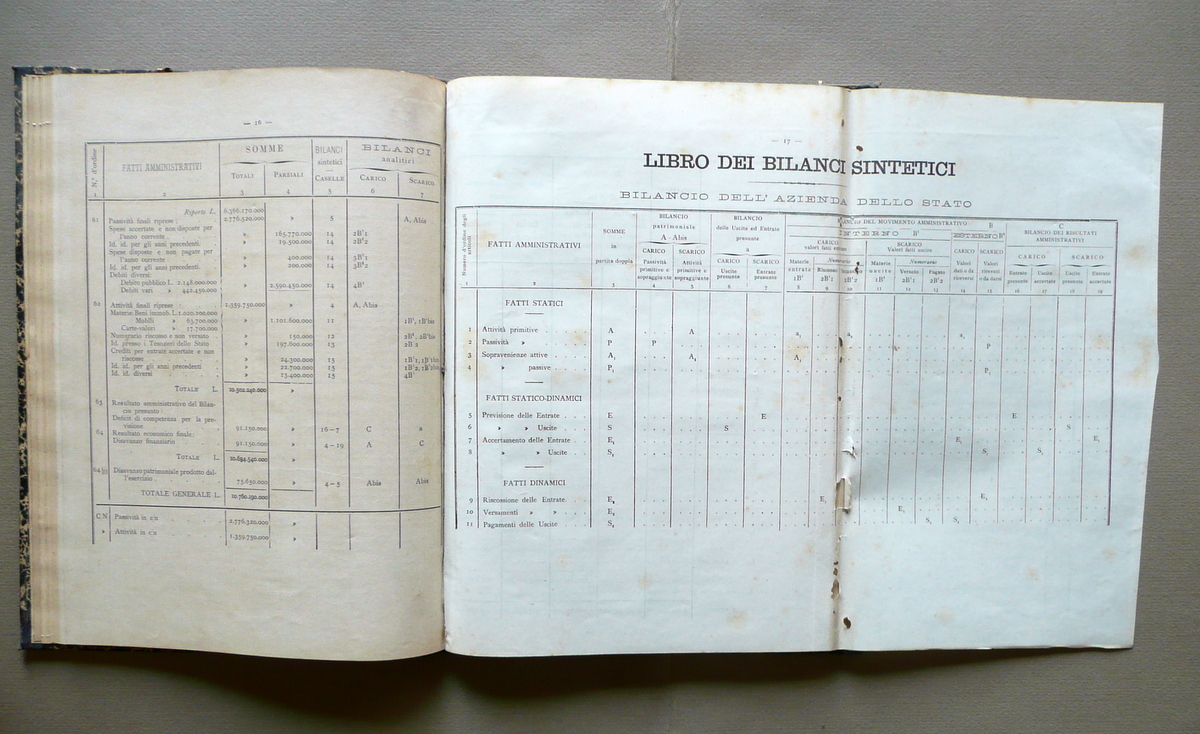 — 16 —
N.° d'ordine
FATTI AMMINISTRATIVI
SOMME
BILANCI
sintetici
BILANCI
analitici
TOTALE
PARZIALI
CASELLE
CARICO
SCARICO
1 2 3 4 5 6 7
Riporto L. 6.366.170.000
61 Passività finali riprese : 2.776.520.000 » 5 A, Abis
Spese accertate e non disposte per
l'anno corrente » 165.770.000 14 2B'1
Id. id. per gli anni precedenti. » 19.500.000 14 2B'2
Spese disposte e non pagate per
l'anno corrente » 400.000 14 3B'1
Id. id. per gli anni precedenti. » 200.000 14 3B'2
Debiti diversi:
Debito pubblico L. 2.148.000.000
Debiti vari » 442.450.000 » 2.590.450.000 14 4B'
62 Attività finali riprese : 1.359.750.000 » 4 A, Abis
Materie: Beni immob. L. 1.020.200.000
Mobili » 63.700.000 » 1.101.600.000 11 1B', 1B'bis
Carte-valori » 17.700.000
Numerario riscosso e non versato » 150.000 12
Id. presso i Tesorieri dello Stato » 197.600.000 13
Crediti per entrate accertate e non
riscosse » 24.300.000 15
Id. id. per gli anni precedenti » 22.700.000 15
Id. id. diversi » 13.400.000 15 4B'
TOTALE L. 10.502.240.000 »
63 Resultato amministrativo del Bilan-
cio presunto:
Deficit di competenza per la pre-
visione 91.150.000 » 16-7 C »
64 Resultato economico finale:
Disavanzo finanziario 91.150.000 » 4-19 A C
TOTALE L. 10.684.540.000 »
64 Disavanzo patrimoniale prodotto dal-
l'esercizio 75.650.000 » 4-5 Abis Abis
TOTALE GENERALE L. 10.760.190.000 »
C.N Passività in c/n 2.776.320.000 »
» Attività in c/n 1.359.750.000 »
— 17 —
LIBRO DEI BILANCI SINTETICI
BILANCIO DELL'AZIENDA DELLO STATO
Numero d'ordine degli articoli
FATTI AMMINISTRATIVI
SOMME
in
partita doppia
BILANCIO
patrimoniale
A Abis
BILANCIO
delle Uscite ed Entrate
presunte
a
BILANCIO DEL MOVIMENTO AMMINISTRATIVO B
INTERNO B'
ESTERNO B"
C
BILANCIO DEI RISULTATI
AMMINISTRATIVI
CARICO
Passività
primitive e
sopraggiunte
SCARICO
Attività
primitive e
sopraggiunte
CARICO
Uscite
presunte
SCARICO
Entrate
presunte
CARICO
valori fatti entrare
SCARICO
Valori fatti uscire
Materie
entrate
1B'
Numerario
Riscosso
2B'1
2B'2
Materie
uscite
1B'
Numerario
Versato
2B'1
Pagato
2B'2
CARICO
Valori
dati o da
riceversi
SCARICO
Valori
ricevuti
o da darsi
CARICO
SCARICO
Entrate
presunte
Uscite
accertate
Uscite
presunte
Entrate
accertate
1 2 3 4 5 6 7 8 9 10 11 12 13 14 15 16 17 18 19
FATTI STATICI
1 Attività primitive A A
2 Passività » P P P
3 Sopravenienze attive A, A, A,
4 » passive P, P,
FATTI STATICO-DINAMICI
5 Previsione delle Entrate E E E
6 » » Uscite S S S
7 Accertamento delle Entrate E, E, E,
8 » » Uscite S, S, S,
FATTI DINAMICI
9 Riscossione delle Entrate. E E E
10 Versamenti » » E E
11 Pagamenti delle Uscite S S S